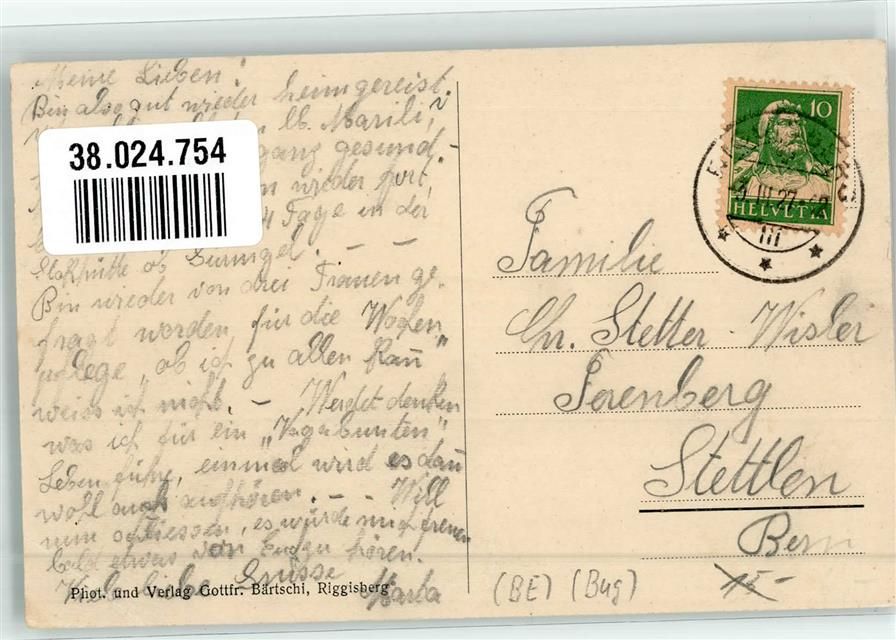 Meine Lieben!
Bin also gut wieder heimgereist.
lb. Marili,
gang gesund.
wieder fort,
4 Tage in der
ob Gurnigel. — —
Bin wieder von drei Frauen ge-
fragt worden für die Wochen
pflege, ob ich zu allen kann
weiss ich nicht. — Werdet denken
was ich für ein „Vagabunten"
Leben führe, einmal wird es dann
wohl auch aufhören. — — Will
nun schliessen, es würde mich freuen
bald etwas von Euch zu hören.
Viele liebe Grüsse
Phot. und Verlag Gottfr. Bärtschi, Riggisberg
38.024.754
10
HELVETIA
III.27
Familie
Chr. Stetter-Wisler
Ferenberg
Stettlen
Bern
(BE) (Bug)
15.-